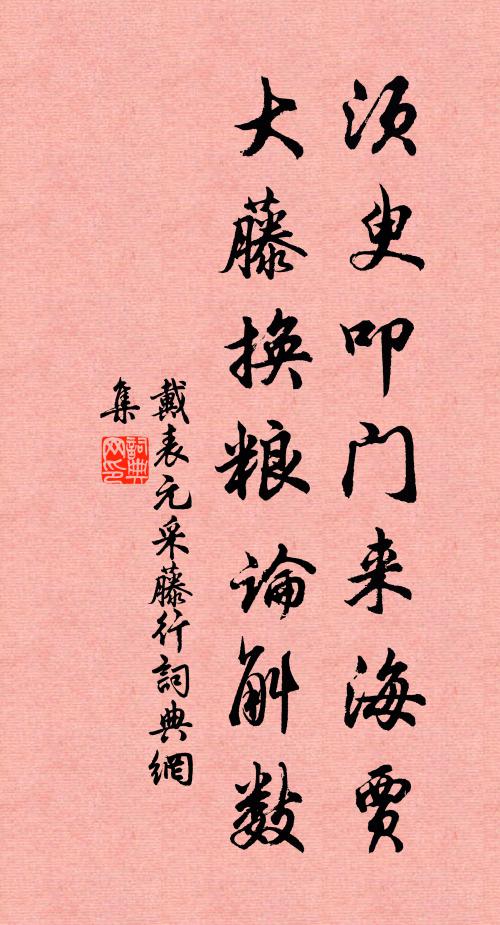 须臾叩门来海贾
大藤换粮论斛数
戴表元采藤行词典網
集
詞典網印